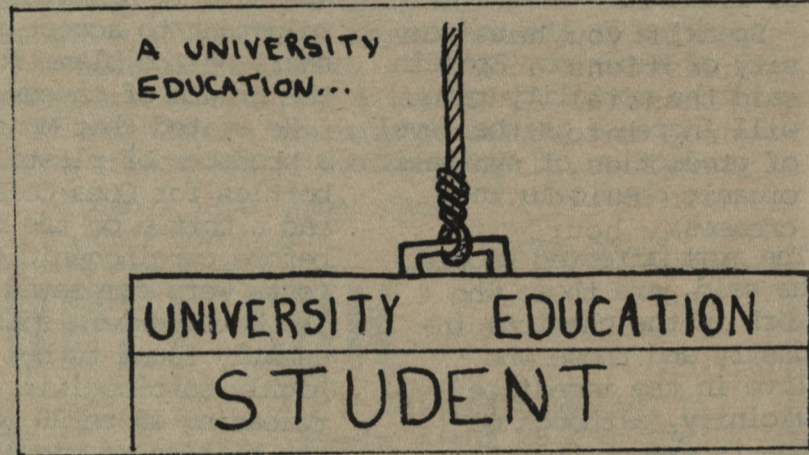 A UNIVERSITY
EDUCATION...
UNIVERSITY EDUCATION
STUDENT